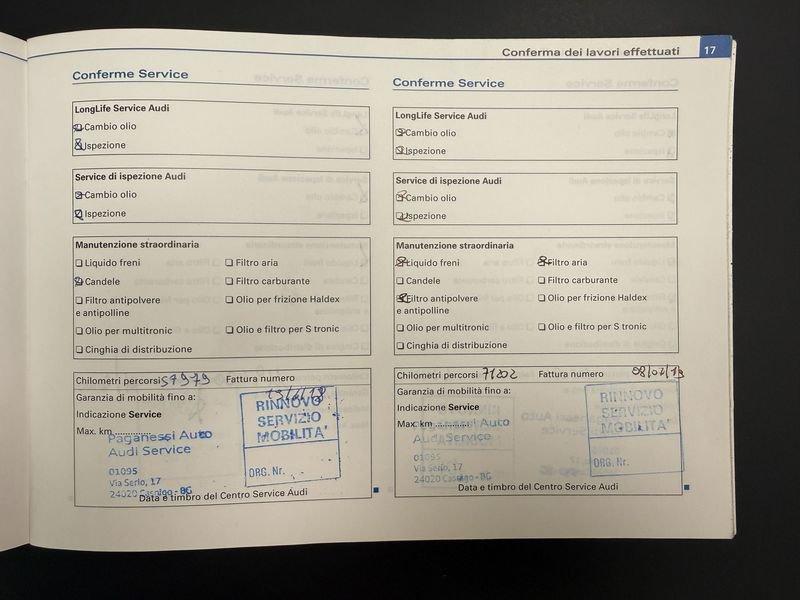 Conferma dei lavori effettuati 17
Conferme Service
LongLife Service Audi
Cambio olio
Ispezione
Service di ispezione Audi
Cambio olio
Ispezione
Manutenzione straordinaria
Liquido freni
Filtro aria
Candele
Filtro carburante
Filtro antipolvere
e antipolline
Olio per frizione Haldex
Olio per multitronic
Olio e filtro per S tronic
Cinghia di distribuzione
Chilometri percorsi 57979 Fattura numero
Garanzia di mobilità fino a:
Indicazione Service
Max. km ..............
Paganessi Auto
Audi Service
01095
Via Serio, 17
24020 Casnigo - BG
RINNOVO
SERVIZIO
MOBILITA'
ORG. Nr.
Data e timbro del Centro Service Audi
Conferme Service
LongLife Service Audi
Cambio olio
Ispezione
Service di ispezione Audi
Cambio olio
Ispezione
Manutenzione straordinaria
Liquido freni
Filtro aria
Candele
Filtro carburante
Filtro antipolvere
e antipolline
Olio per frizione Haldex
Olio per multitronic
Olio e filtro per S tronic
Cinghia di distribuzione
Chilometri percorsi 71202 Fattura numero
Garanzia di mobilità fino a:
Indicazione Service
Max. km ..............
Paganessi Auto
Audi Service
01095
Via Serio, 17
24020 Casnigo - BG
RINNOVO
SERVIZIO
MOBILITA'
ORG. Nr.
Data e timbro del Centro Service Audi